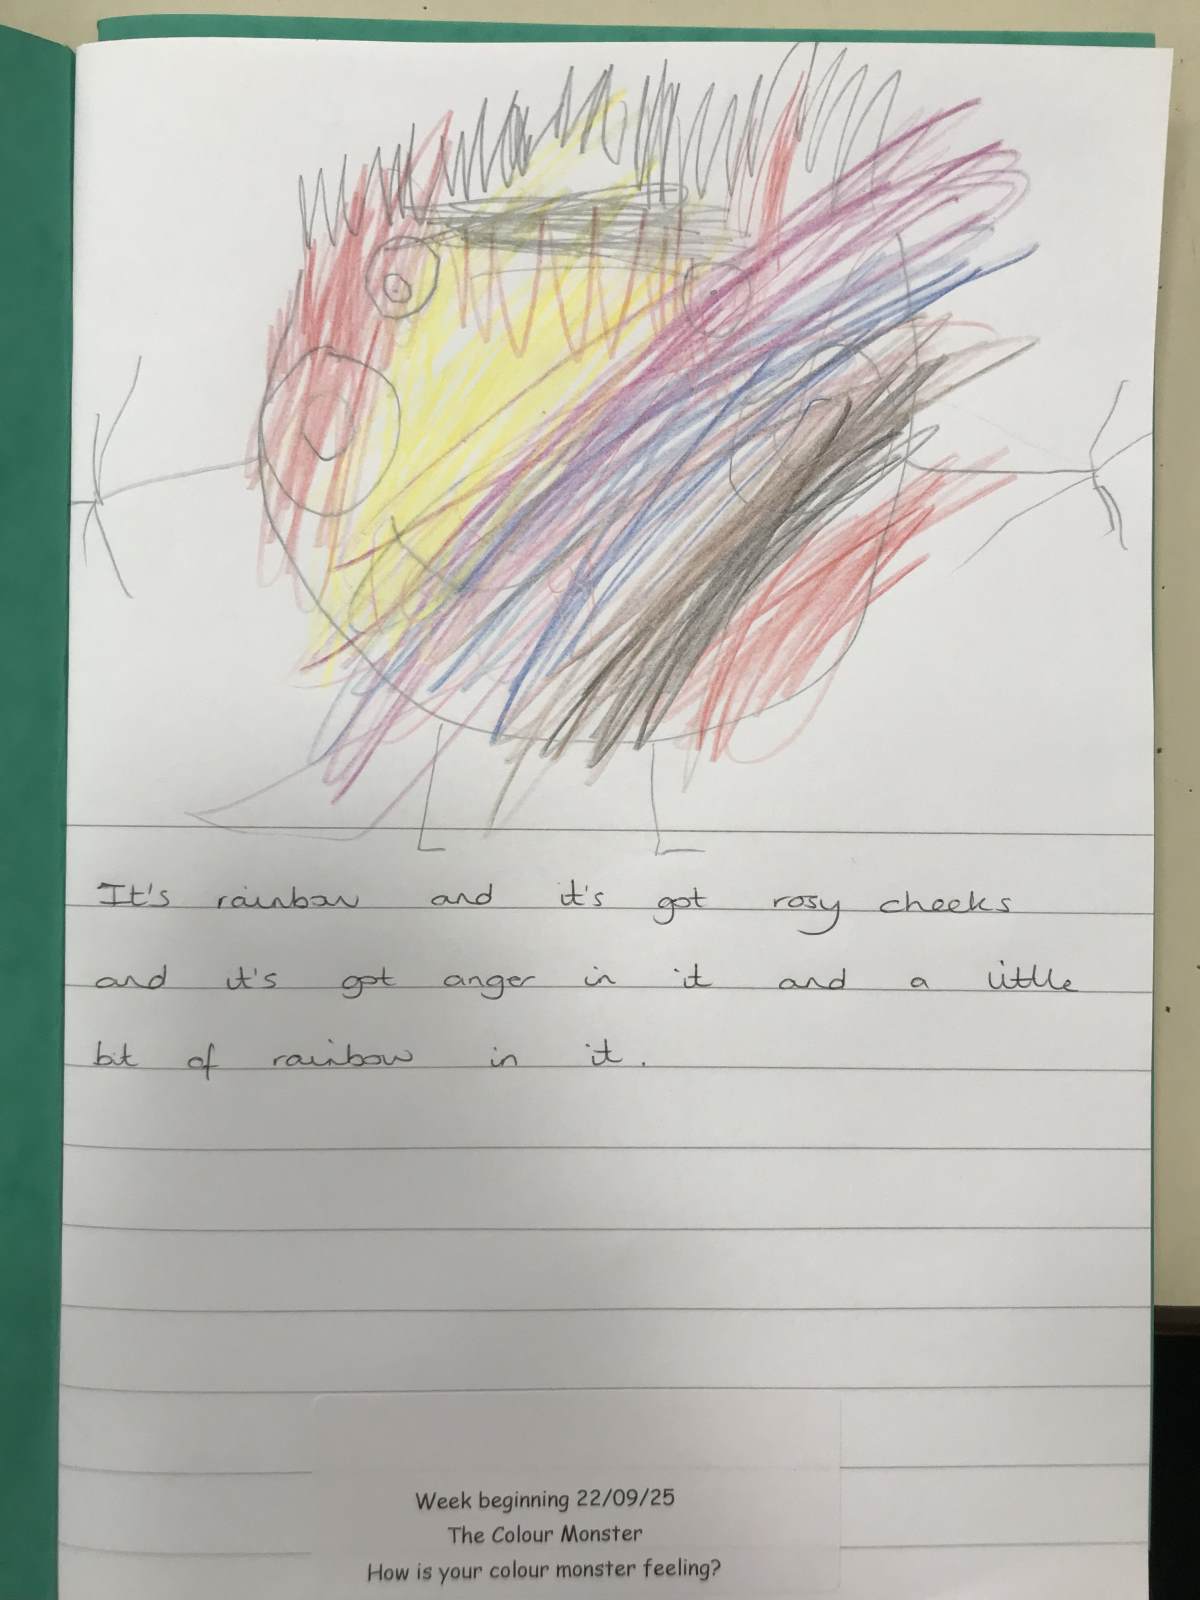 It's rainbow and it's got rosy cheeks
and it's got anger in it and a little
bit of rainbow in it.
Week beginning 22/09/25
The Colour Monster
How is your colour monster feeling?